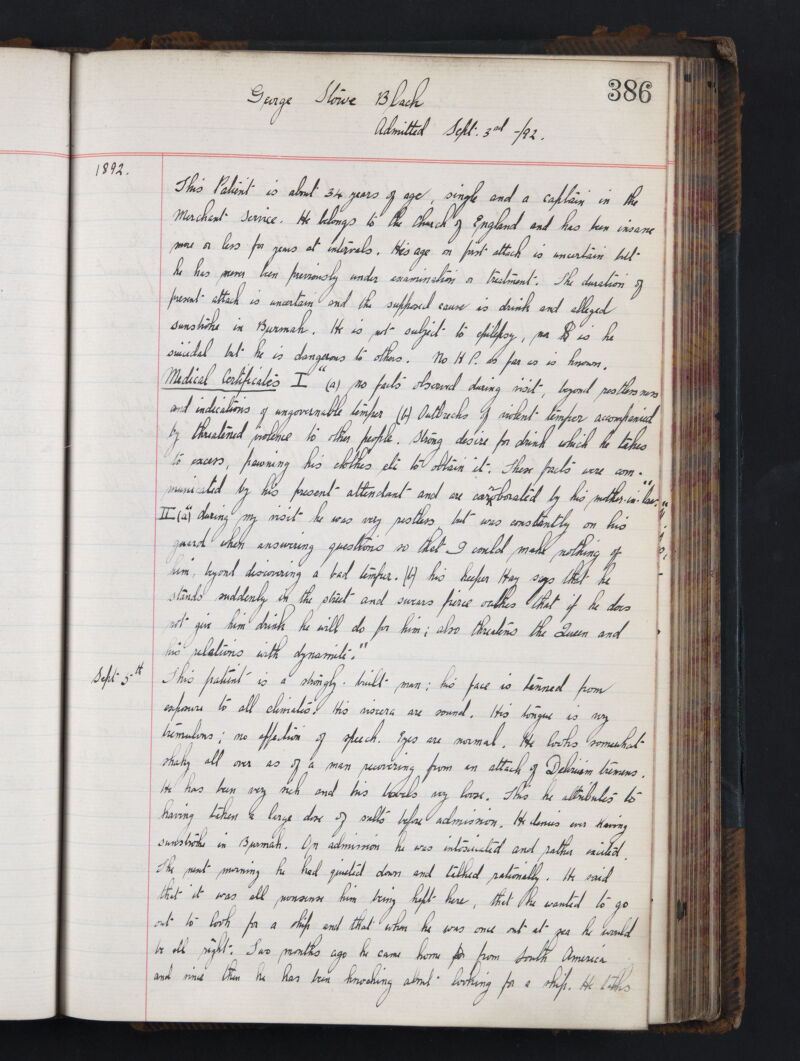 386
George Stowe Black
Admitted Sept. 3rd -/92.
1892.
This Patient is about 34 years of age, single and a captain in the
Merchant Service. He belongs to the Church of England and has been insane
more or less for years at intervals. His age on first attack is uncertain but
he has never been previously under examination or treatment. The duration of
present attack is uncertain and the supposed cause is drink and alleged
sunstroke in Burmah. He is not subject to epilepsy, nor is he
suicidal but he is dangerous to others. No H P. as far as is known.
Medical Certificates I "(a) no facts observed during visit, beyond restlessness
and indications of ungovernable temper (b) Outbreaks of violent temper accompanied
by threatened violence to other people. Strong desire for drink which he takes
to excess, pawning his clothes etc to obtain it. These facts were com-
municated by his present attendant and are corroborated by his mother-in-law."
II "(a) during my visit he was very restless, but was constantly on his
guard when answering questions so that I could make nothing of
him, beyond discovering a bad temper. (b) his keeper Hay says that he
stands suddenly in the street and swears fierce oathes that if he does
not give him drink he will do for him; also threatens the Queen and
his relations with dynamite."
Sept 5th
This patient is a strongly-built man; his face is tanned from
exposure to all climates. His viscera are sound. His tongue is very
tremulous; no affection of speech. Eyes are normal. He looks somewhat
shaky all over as of a man recovering from an attack of Delirium tremens.
He has been very sick and his bowels very loose. This he attributes to
having taken a large dose of salts before admission. He denies ever having
sunstroke in Burmah. On admission he was intoxicated and rather excited.
The next morning he had quieted down and talked rationally. He said
that it was all nonsense him being kept here, that he wanted to go
out to look for a ship and that when he was once out at sea he would
be all right. Two months ago he came home from South America
and since then he has been knocking about looking for a ship. He talks